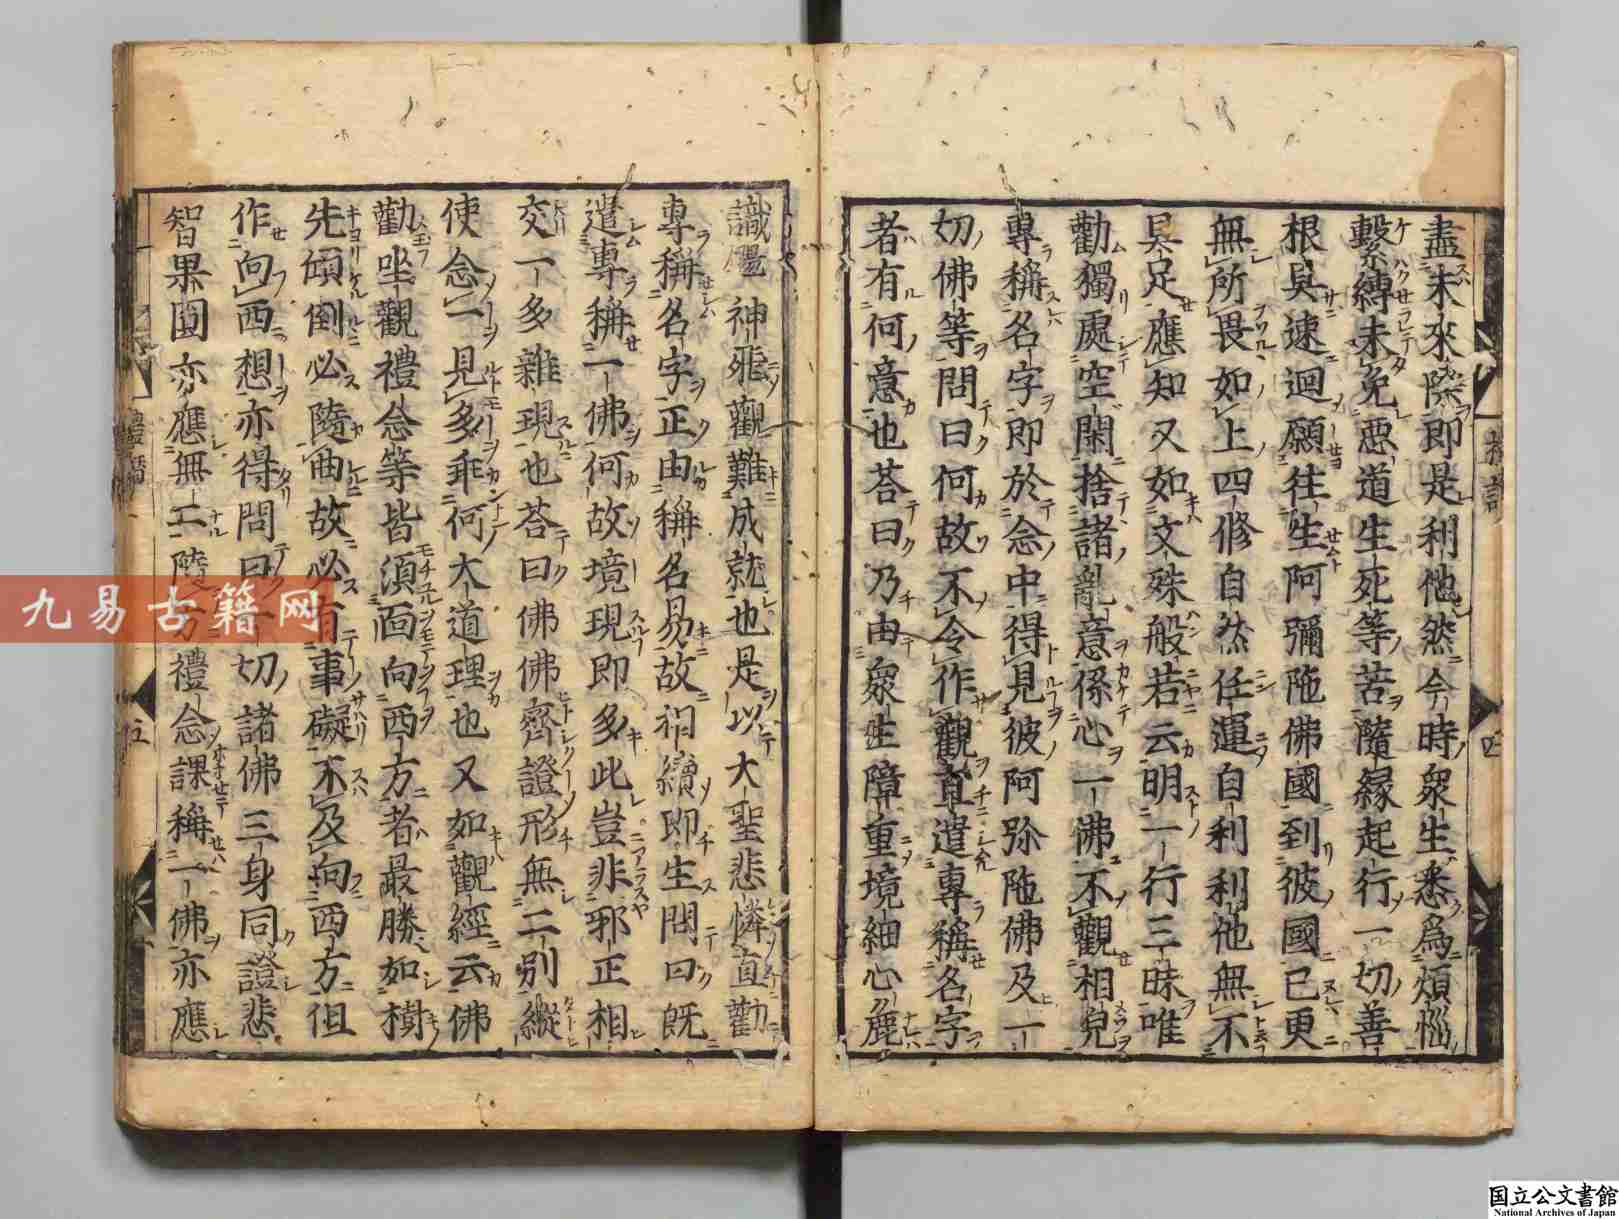 盡未來際即是利他然今時衆生悉爲煩惱
繫縛未免惡道生死等苦隨縁起行一切善
根具速迴願往生阿彌陁佛國到彼國已更
無所畏如上四修自然任運自利利他無不
具足應知又如文殊般若云明一行三昧唯
勸獨處空閑捨諸亂意係心一佛不觀相皃
專稱名字即於念中得見彼阿弥陁佛及一
切佛等問曰何故不令作觀直遣專稱名字
者有何意也荅曰乃由衆生障重境細心麁
識颺神飛觀難成就也是以大聖悲憐直勸
專稱名字正由稱名易故相續即生問曰既
遣專稱一佛何故境現即多此豈非邪正相
交一多雜現也荅曰佛佛齊證形無二別縱
使念一見多乖何大道理也又如觀經云佛
勸坐觀禮念等皆須面向西方者最勝如樹
先傾倒必隨曲故必有事礙不及向西方但
作向西想亦得問曰一切諸佛三身同證悲
智果圓亦應無二隨方禮念課稱一佛亦應
四
五
九易古籍网
国立公文書館
National Archives of Japan